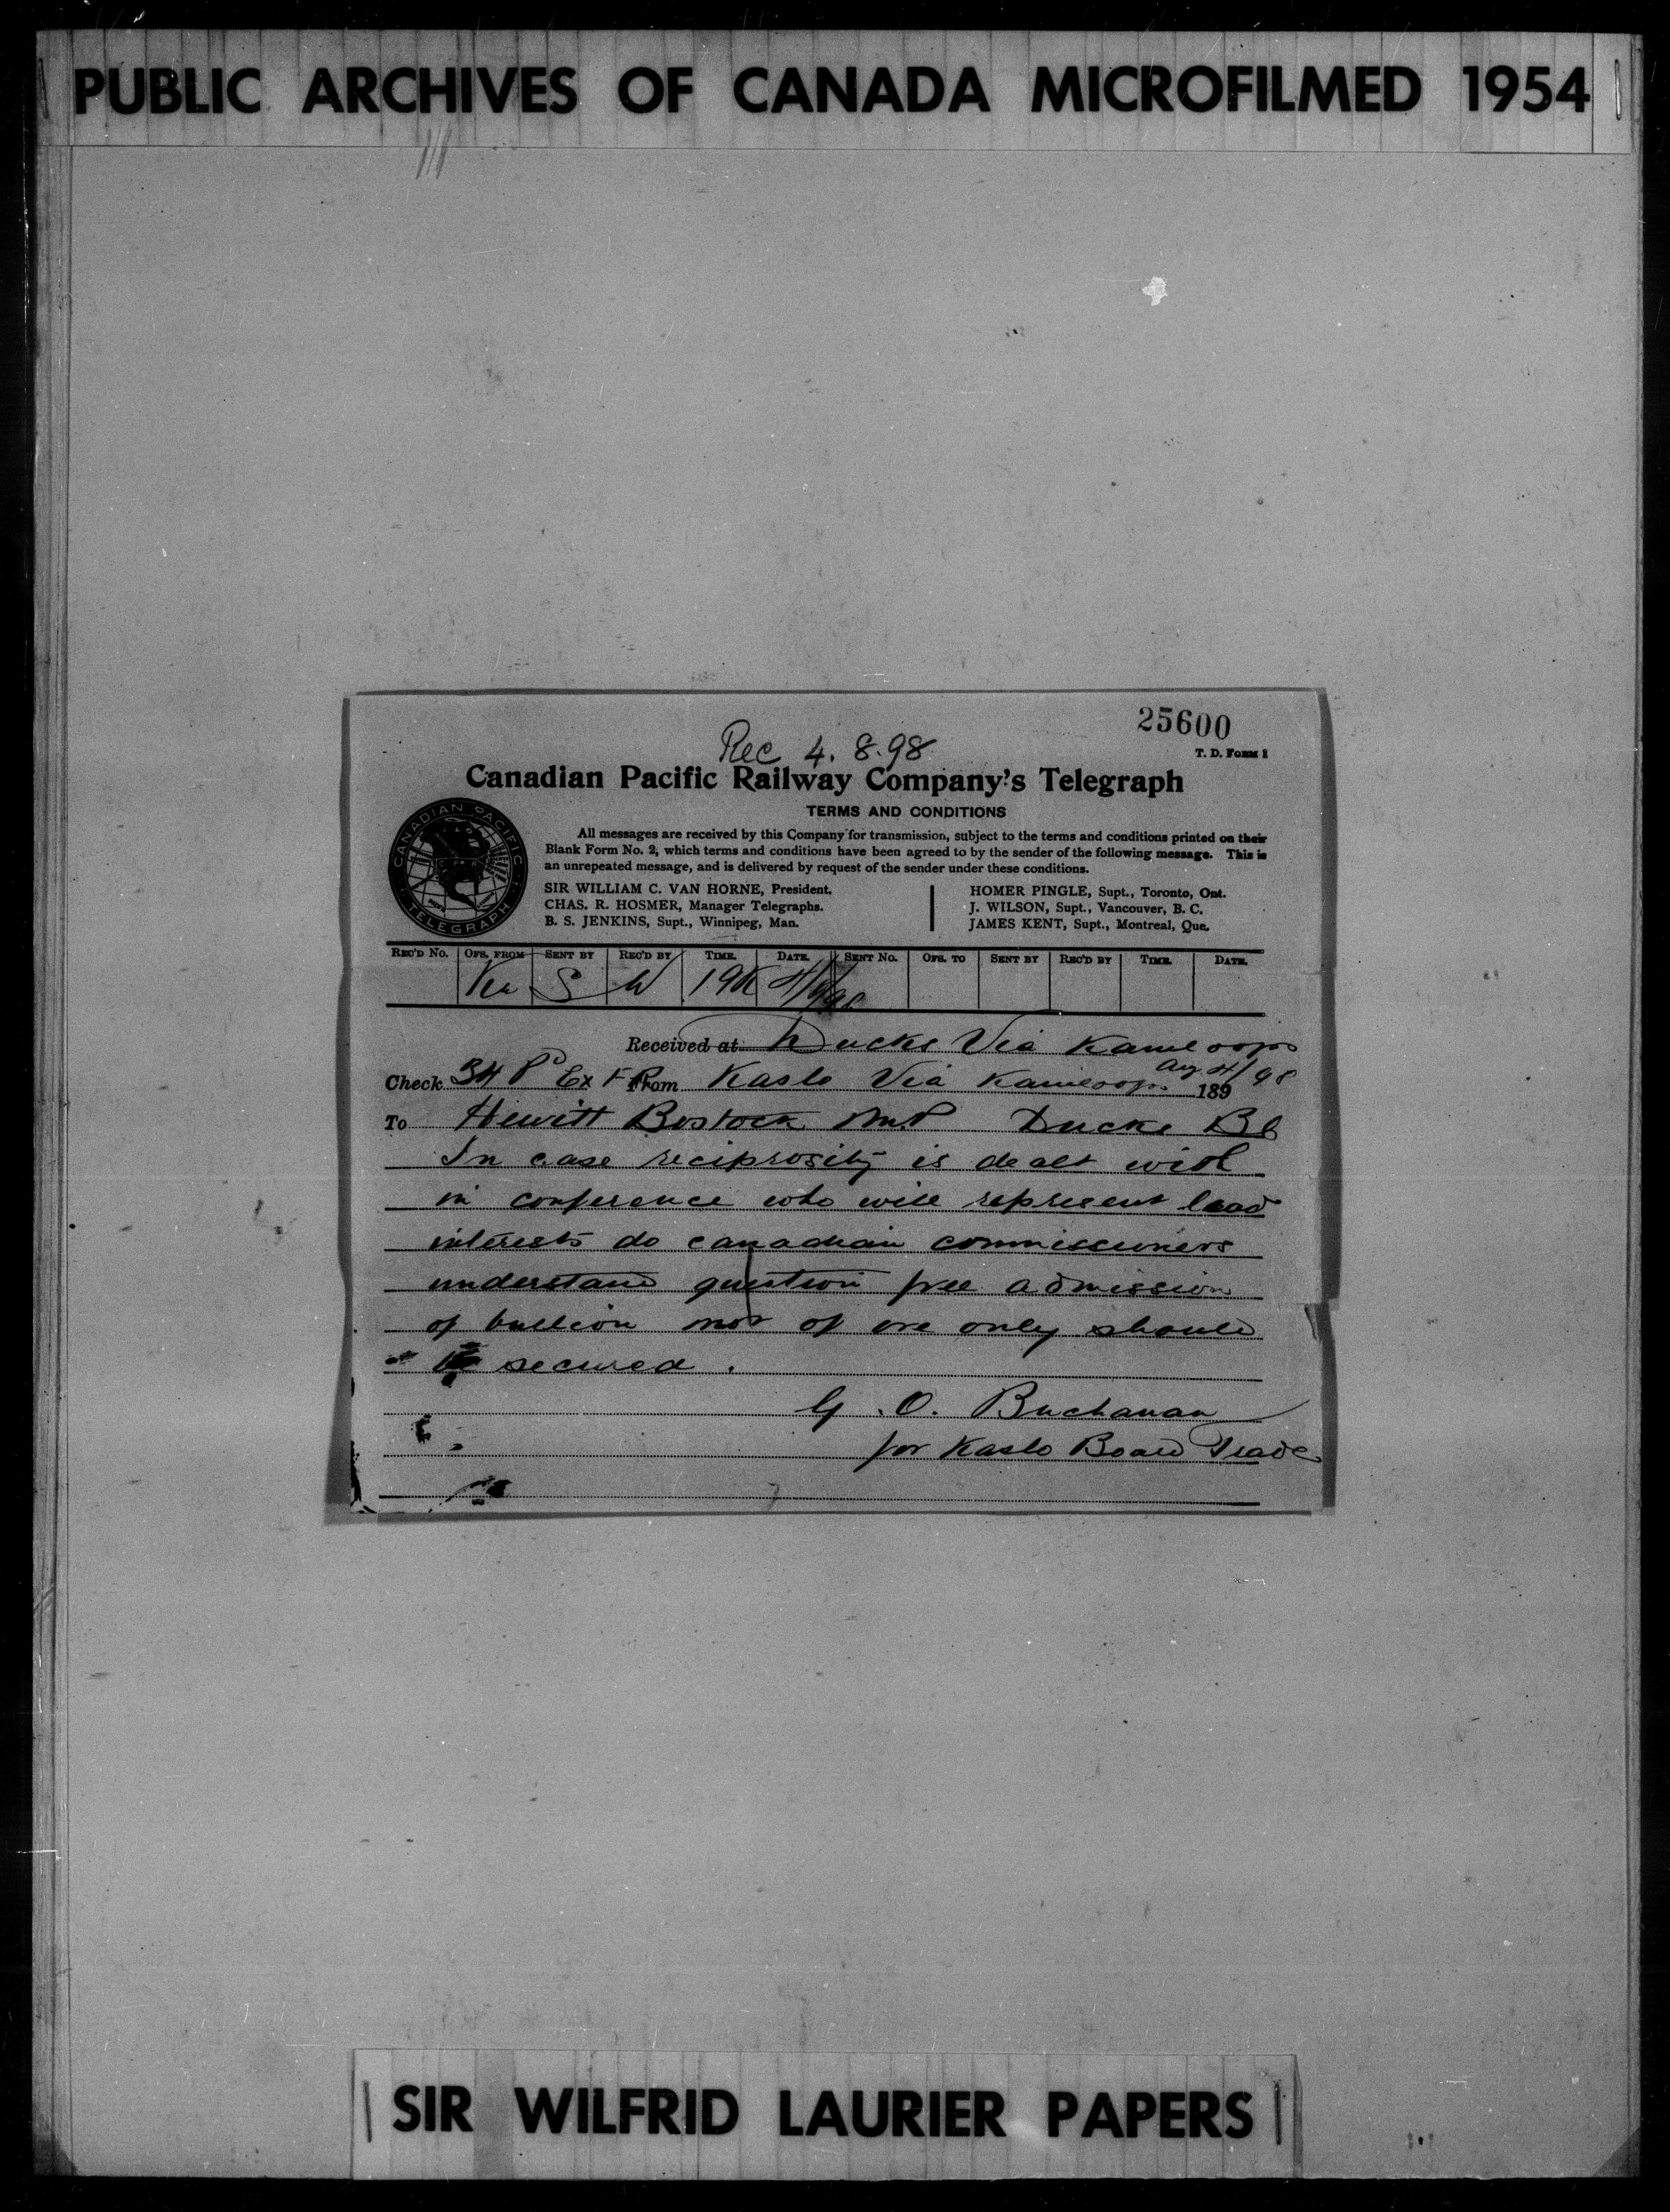 PUBLIC ARCHIVES OF CANADA MICROFILMED 1954
25600
Rec 4. 8. 98
T. D. FORM 1
Canadian Pacific Railway Company's Telegraph
TERMS AND CONDITIONS
All messages are received by this Company for transmission, subject to the terms and conditions printed on their
Blank Form No. 2, which terms and conditions have been agreed to by the sender of the following message. This is
an unrepeated message, and is delivered by request of the sender under these conditions.
SIR WILLIAM C. VAN HORNE, President.
CHAS. R. HOSMER, Manager Telegraphs.
B. S. JENKINS, Supt., Winnipeg, Man.
HOMER PINGLE, Supt., Toronto, Ont.
J. WILSON, Supt., Vancouver, B. C.
JAMES KENT, Supt., Montreal, Que.
CANADIAN PACIFIC TELEGRAPH
REC'D No. OFS. FROM SENT BY REC'D BY TIME. DATE. SENT No. OFS. TO SENT BY REC'D BY TIME. DATE.
S W
Received at Ducks Via Kamloops
Check 34 From Kaslo Via Kamloops Aug 4/98 189
To Hewitt Bostock MP Ducks BC
In case reciprosity is dealt with
in conference who will represent lead
interests do canadian commissioners
understand question free admission
of bullion not of ore only should
be secured.
G. O. Buchanan
for Kaslo Board Trade
SIR WILFRID LAURIER PAPERS